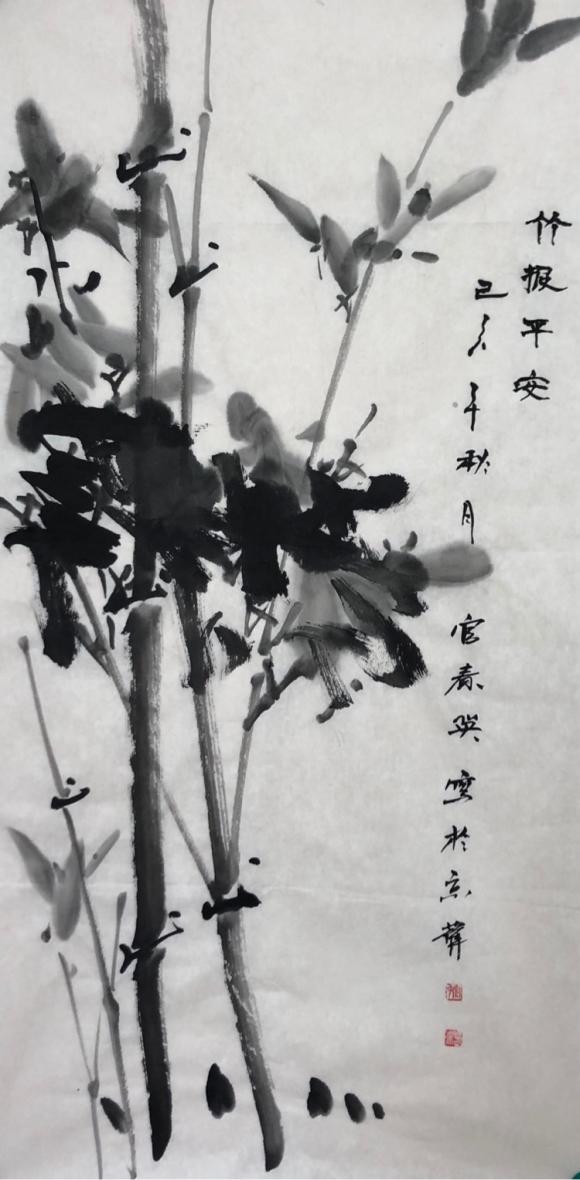 竹报平安
己亥年秋月
官春英写于京华